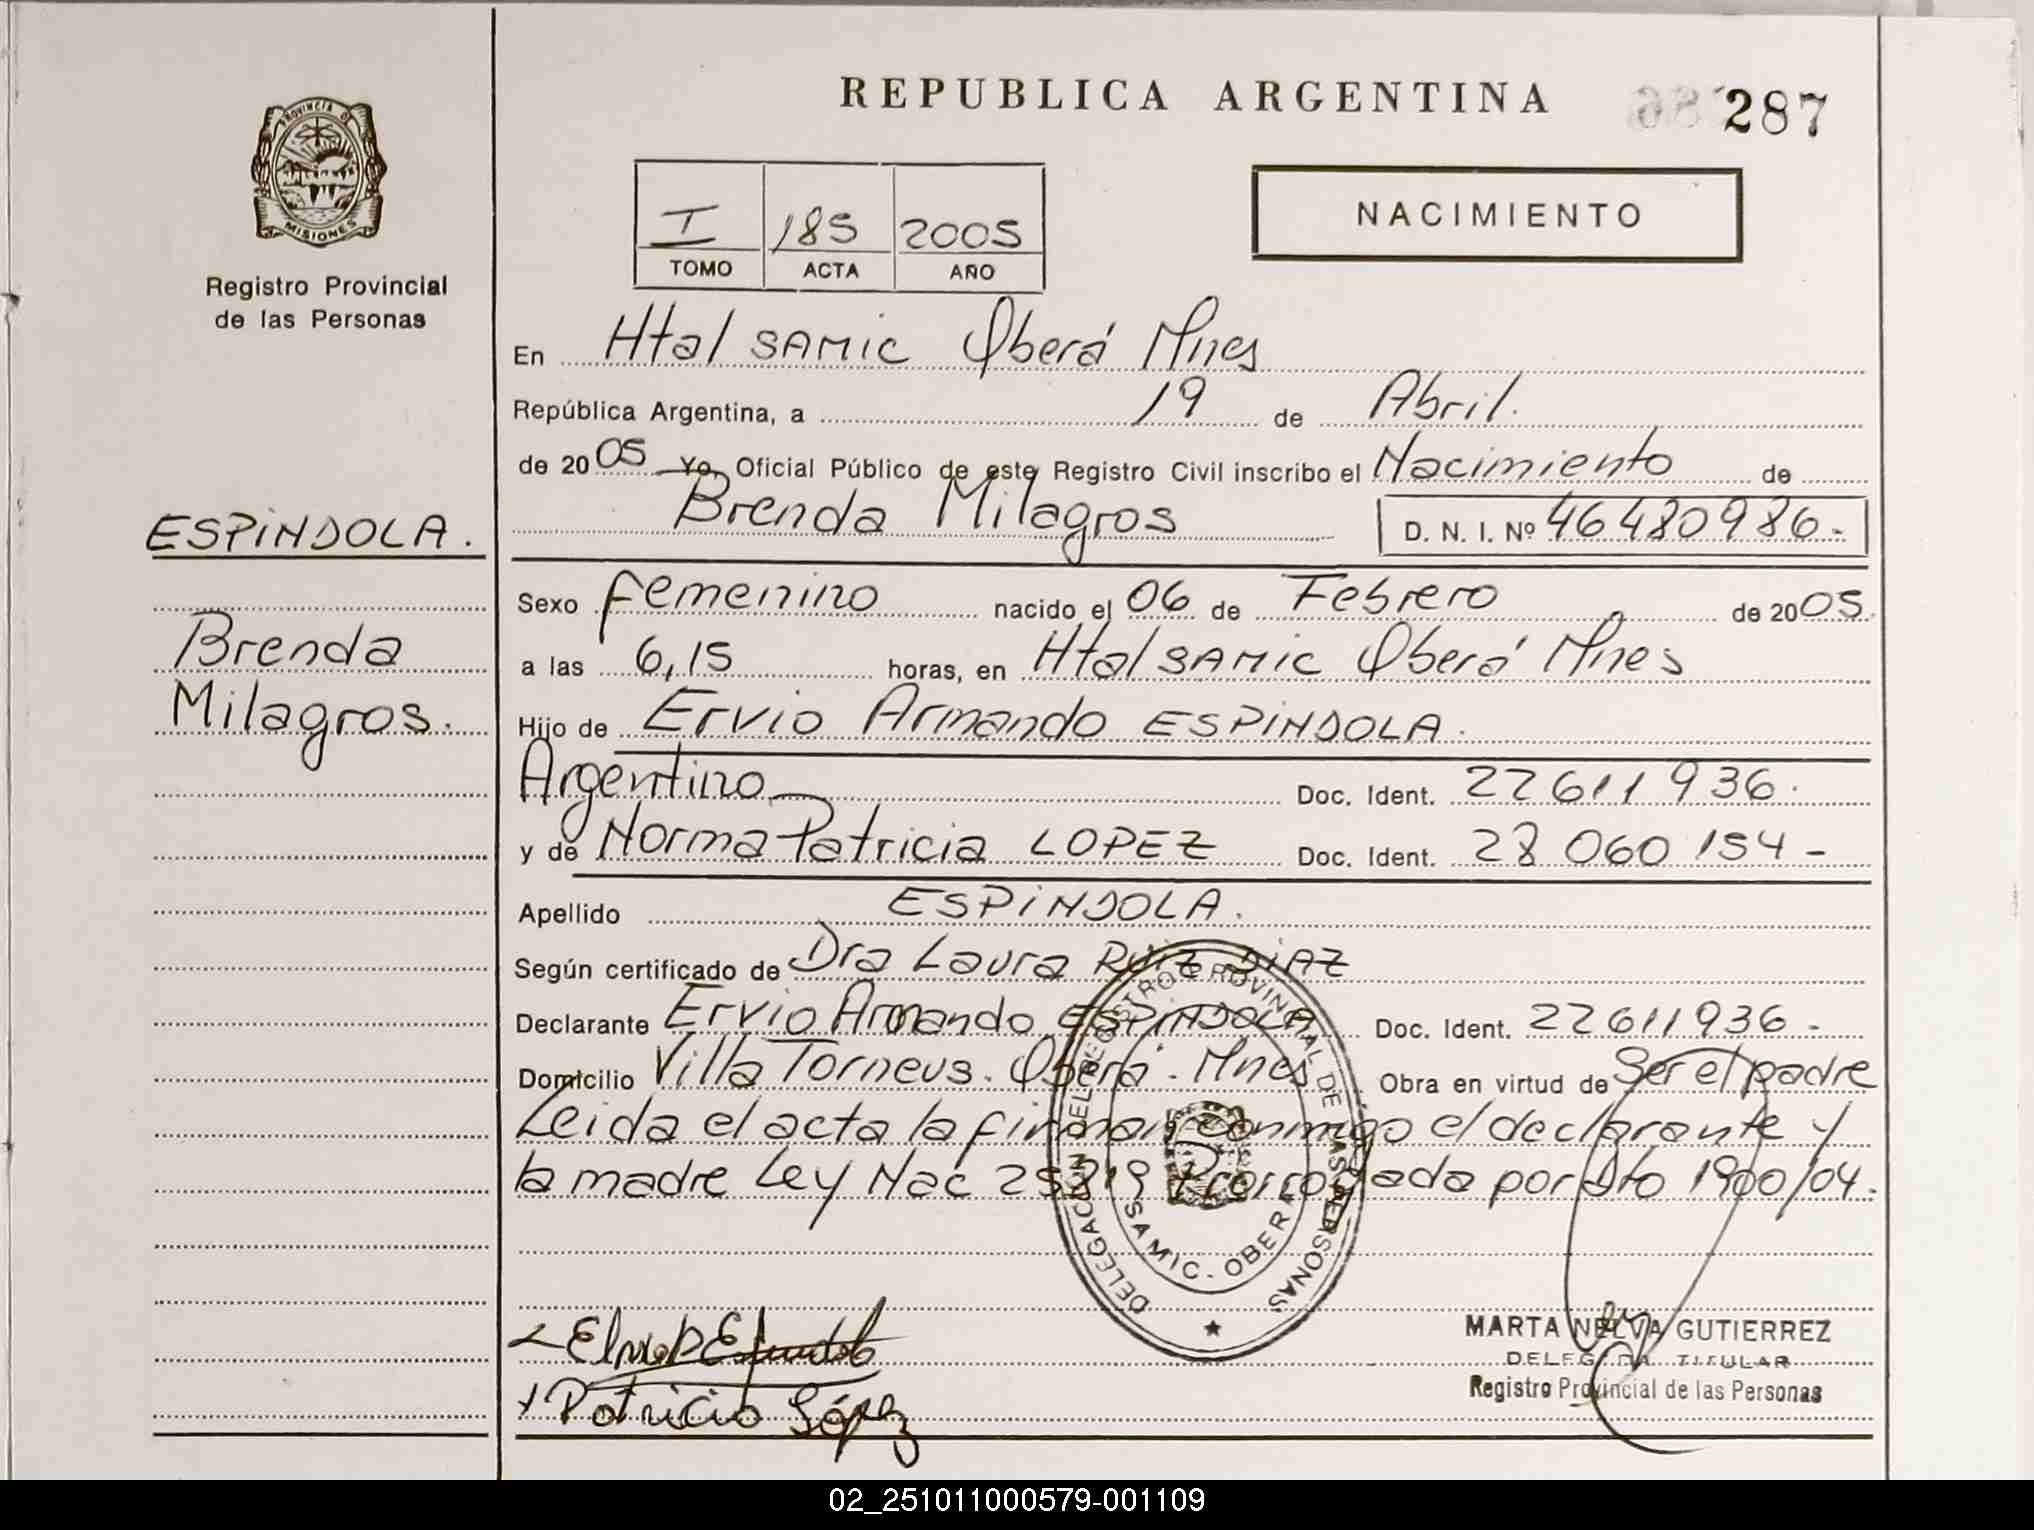 REPUBLICA ARGENTINA
287
PROVINCIA DE
MISIONES
Registro Provincial
de las Personas
I 185 2005
TOMO ACTA AÑO
NACIMIENTO
En Htal SAMIC Oberá Mnes
República Argentina, a 19 de Abril.
de 2005 Yo, Oficial Público de este Registro Civil inscribo el Nacimiento de
Brenda Milagros D. N. I. Nº 46480986.-
ESPINDOLA.
Brenda
Milagros.
Sexo femenino nacido el 06 de Febrero de 2005.
a las 6,15 horas, en Htal SAMIC Oberá Mnes
Hijo de Ervio Armando ESPINDOLA.
Argentino Doc. Ident. 22611936.
y de Norma Patricia LOPEZ Doc. Ident. 28 060 154-
Apellido ESPINDOLA.
Según certificado de Dra Laura RUIZ DIAZ
Declarante Ervio Armando ESPINDOLA Doc. Ident. 22611936.
Domicilio Villa Torneus. Oberá. Mnes Obra en virtud de Ser el padre
Leida el acta la firman conmigo el declarante y
la madre Ley Nac 25819 Prorrogada por Dto 1900/04.
DELEGACION DEL REGISTRO PROVINCIAL DE LAS PERSONAS
SAMIC. OBERA
Patricia López
MARTA NELVA GUTIERREZ
DELEGADA TITULAR
Registro Provincial de las Personas
02_251011000579-001109